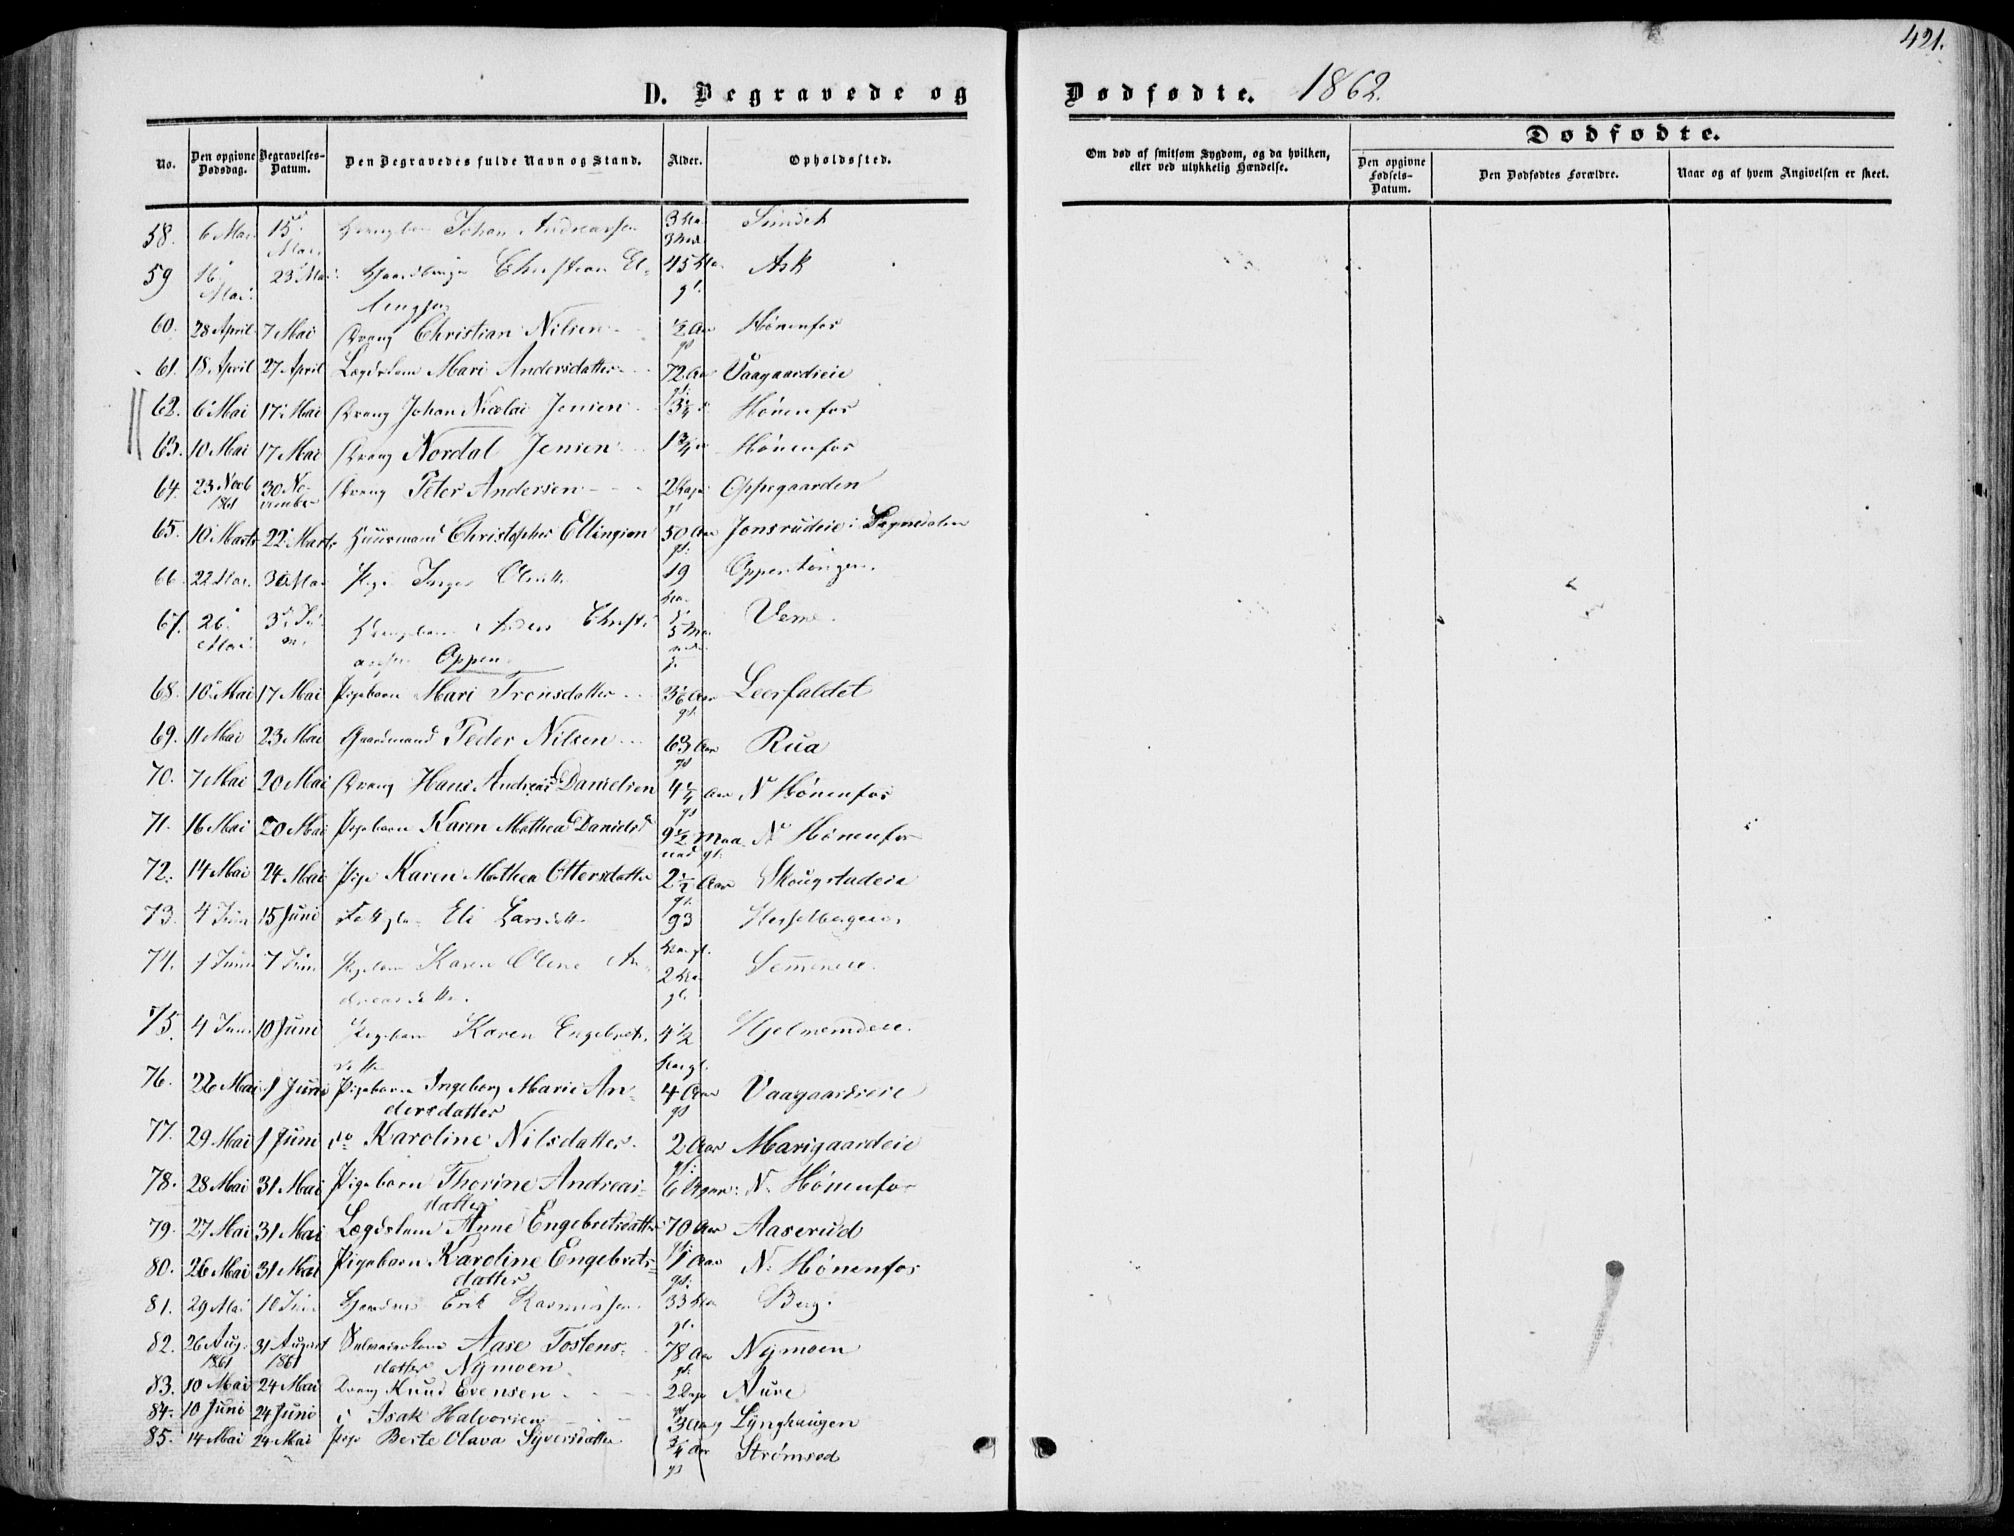 421.
D. Begravede og Dødfødte. 1862.
No. Den opgivne Dødsdag. Begravelses-Datum. Den Begravedes fulde Navn og Stand. Alder. Opholdssted.
Om død af smitsom Sygdom, og da hvilken, eller ved ulykkelig Hændelse.
Dødfødte.
Den opgivne Fødsels-Datum. Den Dødfødtes Forældre. Naar og af hvem Angivelsen er skeet.
58. 6 Mai 15 Mai Johan Andreassen 3
59 16 Mai 23 Mai Christian El- 45 Ask
lingsen gl.
60. 28 April 7 Mai Dreng Christian Nilsen ½ Aar gl Hönenfos
61. 18 April 27 April Lægdslem Mari Andersdatter 72 Aar gl. Vaagaardseie
62. 6 Mai 17 Mai Dreng Johan Nicolai Jensen Hönenfos
63. 10 Mai 17 Mai Dreng Nordal Jensen 1¾ Hönenfos
64. 23 Novb 1861 30 November Dreng Peter Andersen 2 Dage gl Oppegaarden
65. 10 Marts 22 Marts Huusmand Christopher Ellingsen 50 Aar gl. Jonsrudeie i Sognedalen
66. 22 Mai 30 Mai Pige Inger Olsdtr 19
67. 26 Mai 3 Juni Anders Christi- 5 Maaneder Veme
ansen Oppen.
68. 10 Mai 17 Mai Pigebarn Mari Tronsdatter 3 1/6 Aar gl. Leerfaldet
69. 11 Mai 23 Mai Gaardmand Peder Nilsen 63 Aar gl Rua
70. 7 Mai 20 Mai Dreng Hans Andreas Danielsen 4¼ Aar gl N Hönenfos
71. 16 Mai 20 Mai Pigebarn Karen Mathea Danielsd 9½ Maaned gl. N Hönenfos
72. 14 Mai 24 Mai Pige Karen Mathea Ottersdatter 2½ Aar gl. Skougstadeie
73. 4 Juni 15 Juni Eli Larsdtr 93 Aar gl.
74. 1 Juni 7 Juni Pigebarn Karen Oline An- 2 Aar gl.
dreasdtr.
75. 4 Juni 10 Juni Pigebarn Karen Engebrets- 4½ Aar gl. Hjelmemdeie.
dtr
76. 26 Mai 1 Juni Pigebarn Ingeborg Marie An- 4 Aar gl Vaagaardseie
dersdatter
77. 29 Mai 1 Juni do Karoline Nilsdatter 2 Aar gl. Marigaardeie
78. 28 Mai 31 Mai Pigebarn Thorine Andreas- 6 N. Hönenfos
datter
79. 27 Mai 31 Mai Lægdslem Anne Engebretsdatter 70 Aar gl. Aaserud
80. 26 Mai 31 Mai Pigebarn Karoline Engebrets- 1 Aar gl. N. Hönenfos
datter
81. 29 Mai 10 Juni Erik Rasmussen 33 Aar gl. Berg.
82. 26 Aug. 1861 31 August 1861 Aase Tostens- 78 Aar gl. Nymoen
datter Nymoen
83. 10 Mai 24 Mai Dreng Knud Evensen 2 Dage Aure
84. 10 Juni 24 Juni d Isak Halvorsen 3 Lynghaugen
85. 14 Mai 24 Mai Pige Berte Olava Syversdatter ¾ Aar gl Strømsod